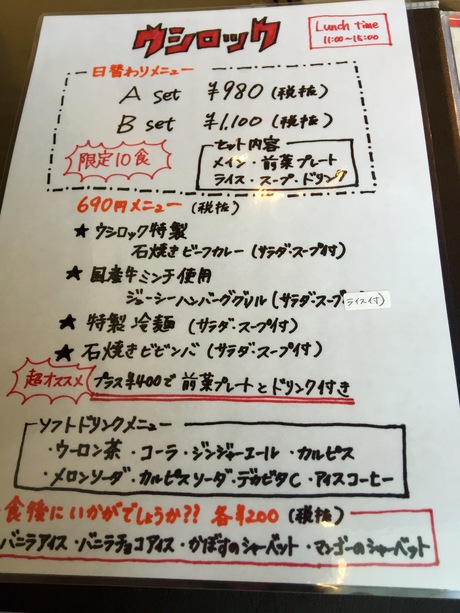 ウシロック
Lunch time
11:00~15:00
日替わりメニュー
A set ¥980(税抜)
B set ¥1,100(税抜)
限定10食
セット内容
メイン・前菜プレート
ライス・スープ・ドリンク
690円メニュー (税抜)
★ ウシロック特製
石焼きビーフカレー(サラダ・スープ付)
★ 国産牛ミンチ使用
ジューシーハンバーググリル(サラダ・スープ ライス付)
★ 特製冷麺(サラダ・スープ付)
★ 石焼きビビンバ(サラダ・スープ付)
超オススメ プラス¥400で前菜プレートとドリンク付き
ソフトドリンクメニュー
・ウーロン茶 ・コーラ・ジンジャーエール ・カルピス
・メロンソーダ・カルピスソーダ・デカビタC・アイスコーヒー
食後にいかがでしょうか?? 各¥200 (税抜)
バニラアイス・バニラチョコアイス・かぼすのシャーベット・マンゴーのシャーベット